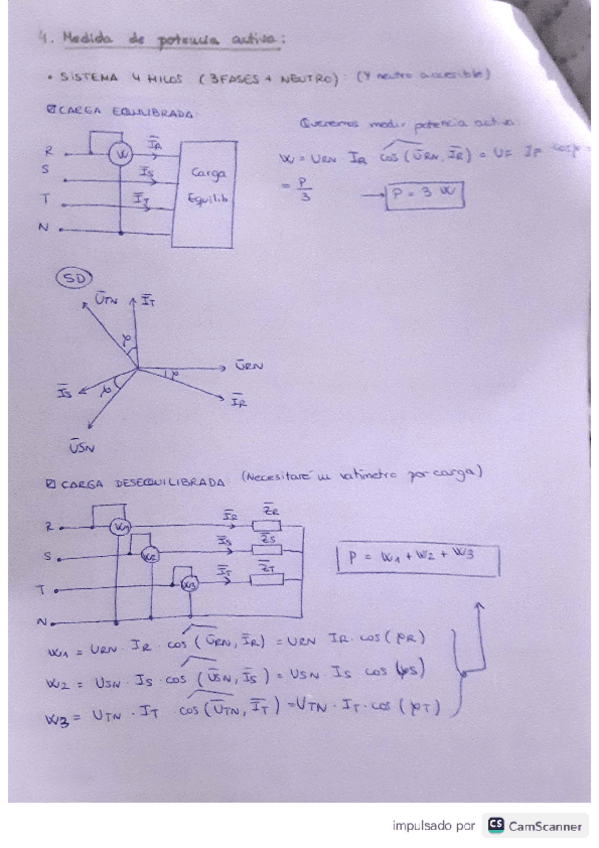 4. Medida de potencia activa:
• SISTEMA 4 HILOS (3 FASES + NEUTRO): (Y neutro accesible)
CARGA EQUILIBRADA:
Queremos medir potencia activa:
R W I̅R
S I̅S
T I̅T
N
Carga
Equilib
W = URN IR cos (U̅RN, I̅R) = UF IF cosφ =
= P/3 → P = 3 W
SD
U̅TN I̅T
φ
U̅RN
φ
I̅S φ I̅R
U̅SN
CARGA DESEQUILIBRADA: (Necesitaré un vatímetro por carga)
R W1 I̅R Z̅R
S W2 I̅S Z̅S
T W3 I̅T Z̅T
N
P = W1 + W2 + W3
W1 = URN · IR · cos (U̅RN, I̅R) = URN IR · cos (φR)
W2 = USN · IS · cos (U̅SN, I̅S) = USN · IS cos (φS)
W3 = UTN · IT · cos (U̅TN, I̅T) = UTN · IT · cos (φT)
impulsado por CS CamScanner